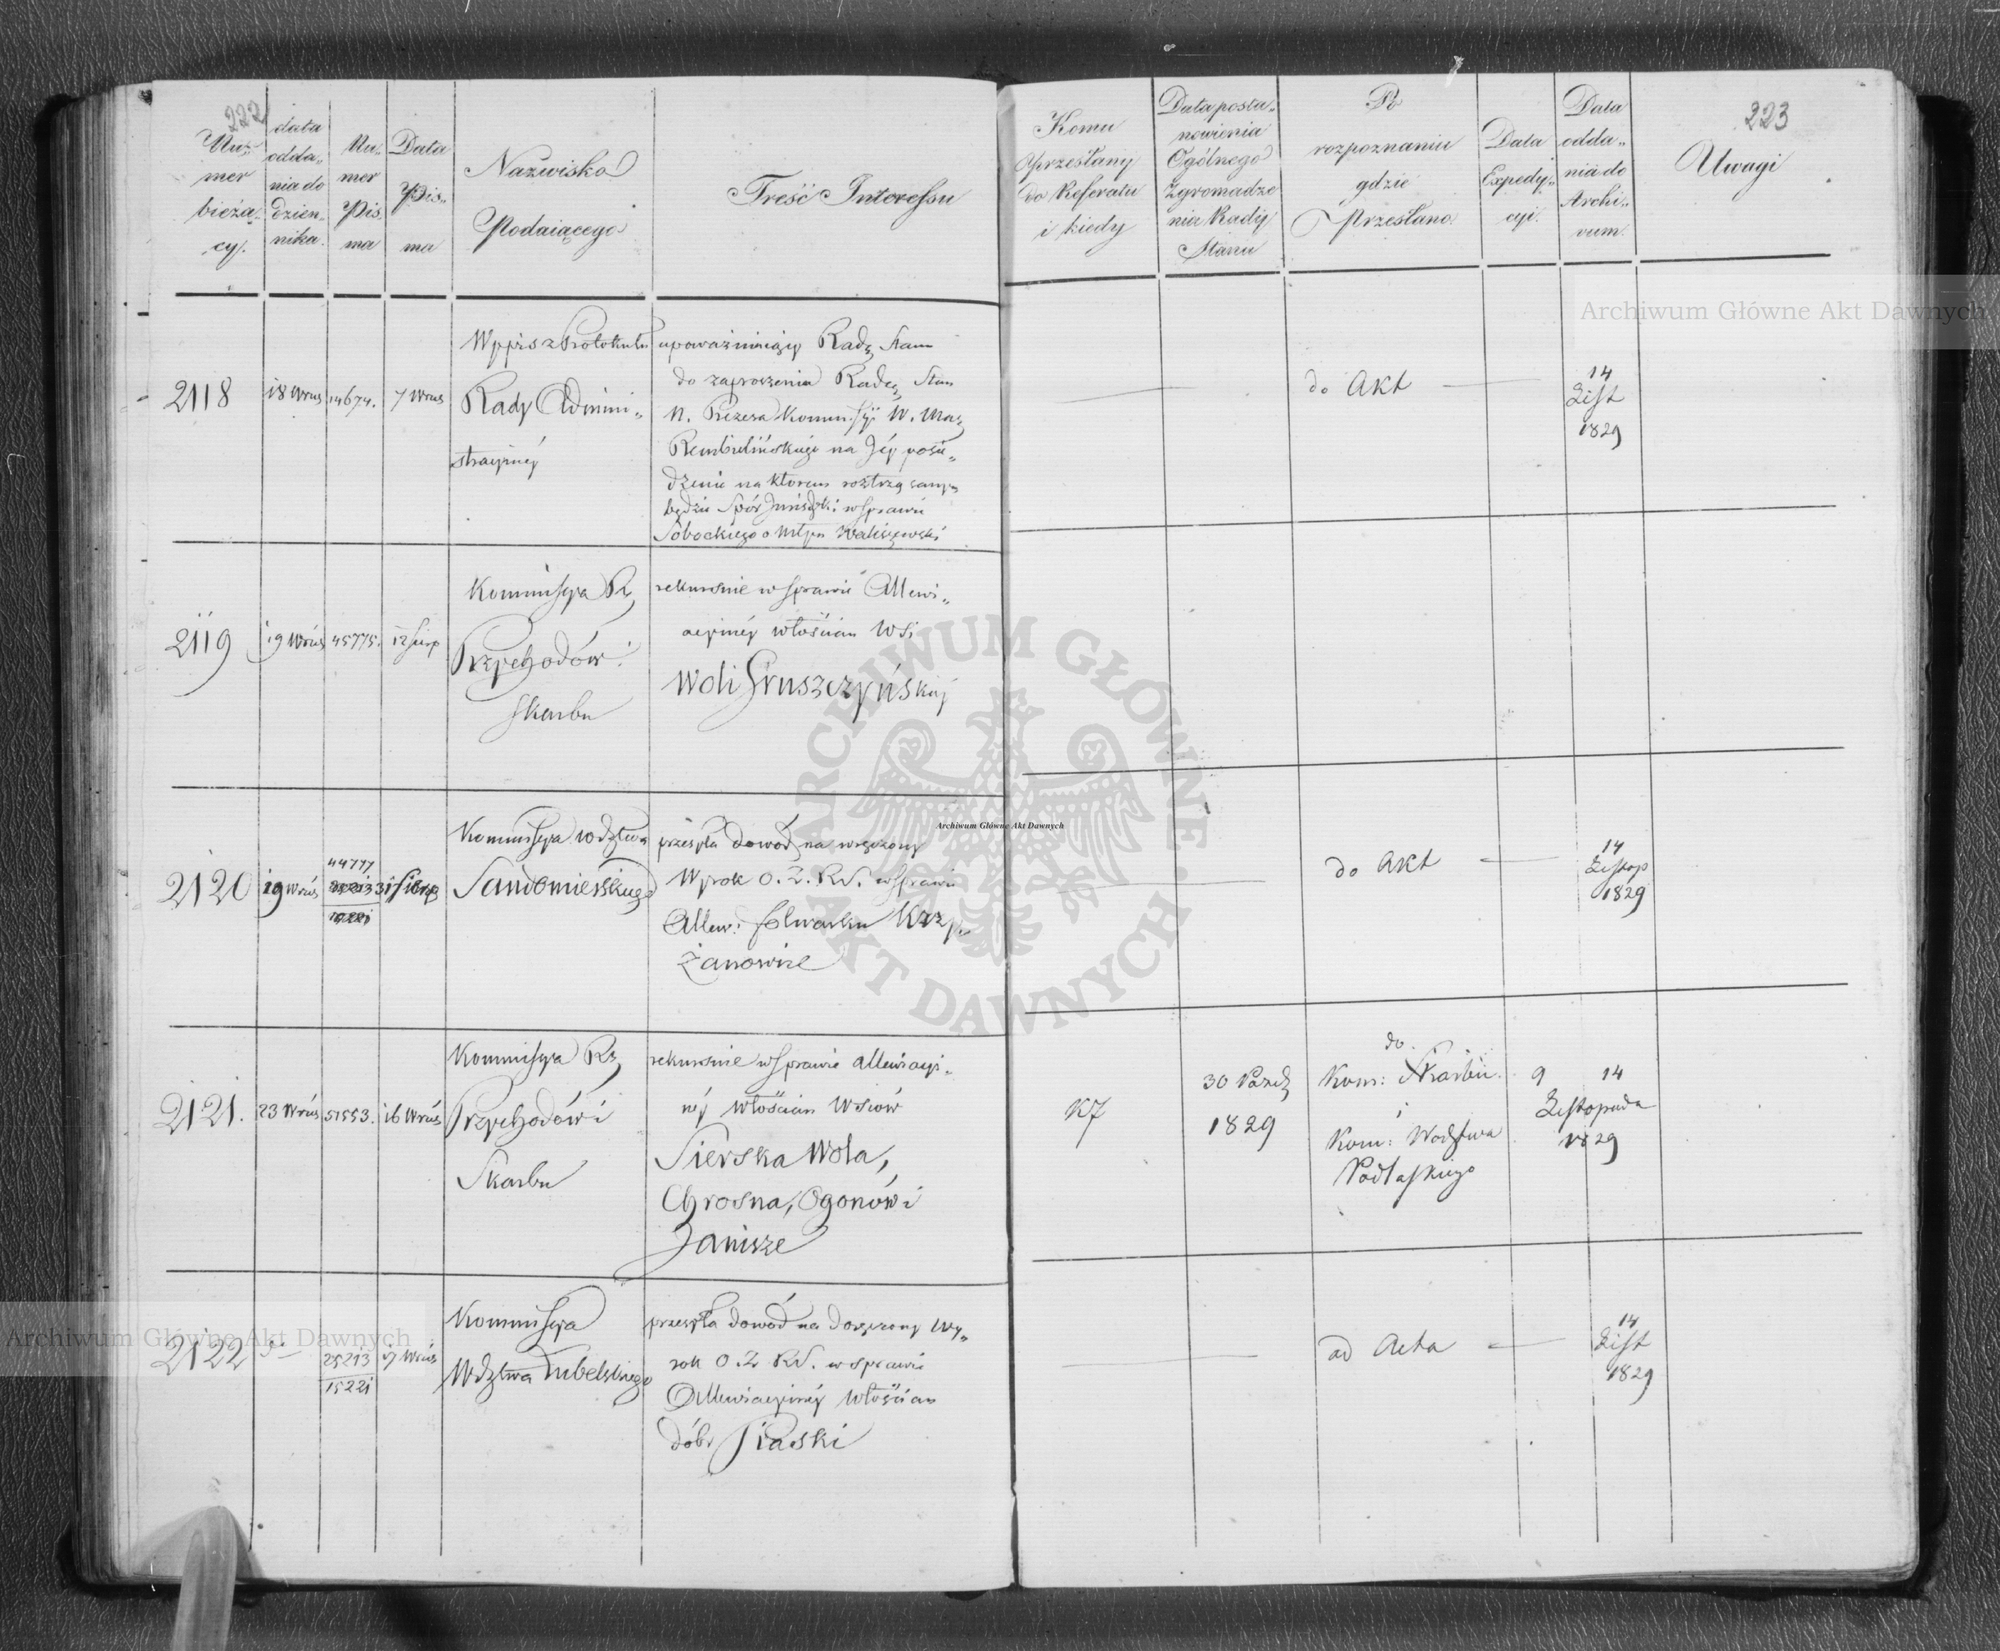 222
Nu-
mer
bieżą-
cy.
data
odda-
nia do
dzien-
nika.
Nu-
mer
Pis
ma
Data
Pis-
ma
Nazwisko
Podaiącego
Treść Interessu
Komu
przesłany
do Referatu
i kiedy
Data posta-
nowienia
Ogólnego
Zgromadze
nia Rady
Stanu
Po
rozpoznaniu
gdzie
Przesłano.
Data
Expedy-
cyi.
Data
odda-
nia do
Archi-
vum.
223
Uwagi
2118
18 Wrześ
14674.
7 Wrześ
Wypis z Protokułu
Rady Admini-
stracyinéy
upoważniaiący Radę Stanu
do zaproszenia Radcę Stan
N. Prezesa Kommissyi W. Maz
Rembielińskiego na Jéy posie-
dzenie na którem roztrząsany
będzie Spór Jurisdykcyi w Sprawie
Sobockiego o Młyn Kaliszewski
do Akt
14
List
1829
2119
19 Wrześ
45775.
12 Sierp
Kommissya Rz
Przychodów i
Skarbu
rekursuie w Sprawie Allewi-
acyinéy włościan Wsi
Woli Gruszczyńskiéy
2120
19 Wrześ
44777
15221
31 Sierp
Kommissya Wdztwa
Sandomierskiego
przesyła dowód na wręczony
Wyrok O. Z. R. S. w Sprawie
Allew: folwarku Krzy-
żanowice
do Akt
14
Listop
1829
2121.
23 Wrześ
51553.
16 Wrześ
Kommissya Rz
Przychodów i
Skarbu
rekursuie w Sprawie allewiacyi-
néy Włościan Wsiów
Sierska Wola,
Chrosna, Ogonów i
Janisze
30 Paźdz
1829
do
Kom: Skarbu.
i
Kom: Wodztwa
Podlaskiego
9 14
Listopada
1829
2122
25213
15221
17 Wrześ
Kommissya
Wdztwa Lubelskiego
przesyła dowód na doręczony Wy-
rok O. Z. R. S. w sprawie
Allewiacyinéy Włościan
dóbr Piaski
ad Acta
14
List
1829
Archiwum Główne Akt Dawnych
ARCHIWUM GŁÓWNE AKT DAWNYCH
Archiwum Główne Akt Dawnych
Archiwum Główne Akt Dawnych